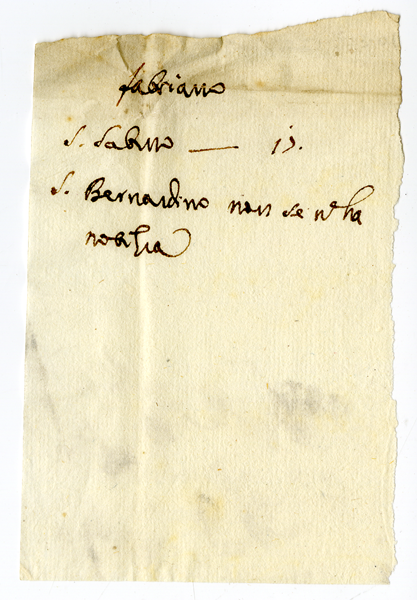 fabriano
S. Sabino — 15.
S. Bernardino non se n'ha
notitia